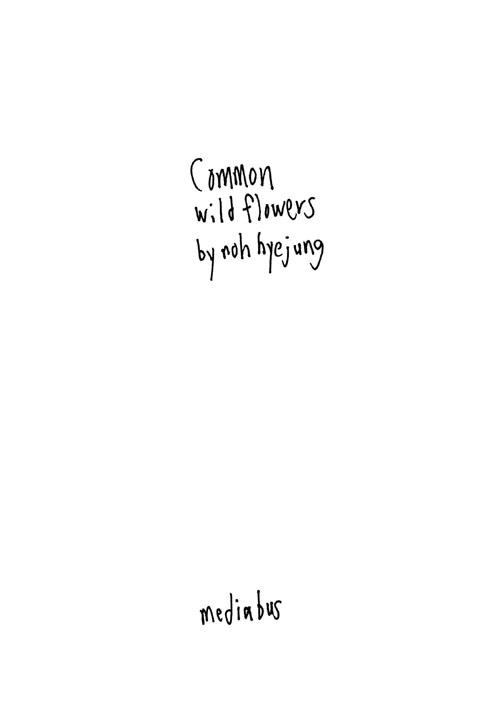 Common
wild flowers
by noh hyejung
mediabus